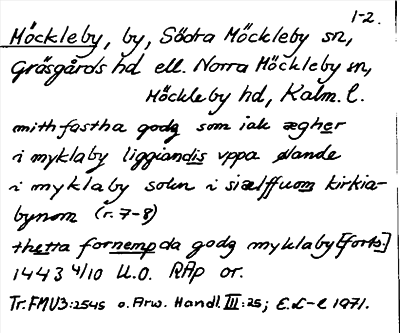 1-2.
Möckleby, by, Södra Möckleby sn,
Gräsgårds hd ell. Norra Möckleby sn,
Möckleby hd, Kalm. l.
mith fastha godz som iak ægher
i myklaby liggiandis vppa ølande
i myklaby sokn i siælffuom kirkia-
bynom (r. 7-8)
thetta fornempda godz myklaby [forts.]
1443 4/10 U.O. RAp or.
Tr. FMU3:2545 o. Arw. Handl III:25; E.L-l 1971.